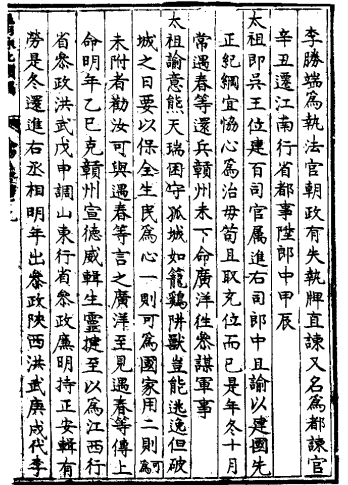 李勝端為執法官朝政有失執牌直諫又名為都諫官
辛丑遷江南行省都事陞郎中甲辰
太祖即吳王位建百司官属進右司郎中且諭以建國先
正紀綱宜恊心為治毋苟且取充位而已是年冬十月
常遇春等還兵贛州未下命廣洋徃叅謀軍事
太祖諭意熊天瑞困守孤城如籠鷄阱獸豈能逃逸但破
城之日要以保全生民為心一則可為國家用二則可為
未附者勸汝可與遇春等言之廣洋至見遇春等傳上
命明年乙巳克贛州宣德威輯生靈捷至以為江西行
省叅政洪武戊申調山東行省叅政廉明持正安輯有
勞是冬還進右丞相明年出叅政陜西洪武庚戌代李